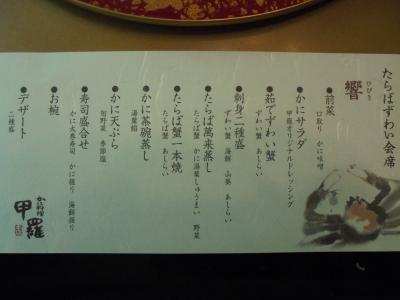 たらばずわい会席
響
ひびき
●前菜
口取り かに味噌
●かにサラダ
甲羅オリジナルドレッシング
●茹でずわい蟹
ずわい蟹 あしらい
●刺身二種盛
ずわい蟹 海鮮 山葵 あしらい
●たらば萬来蒸し
たらば蟹 かに湯葉しゅうまい 野菜
●たらば蟹一本焼
たらば蟹 あしらい
●かに茶碗蒸し
湯葉餡
●かに天ぷら
旬野菜 季節塩
●寿司盛合せ
かに太巻寿司 かに握り 海鮮握り
●お椀
●デザート
二種盛
かに料理
甲羅